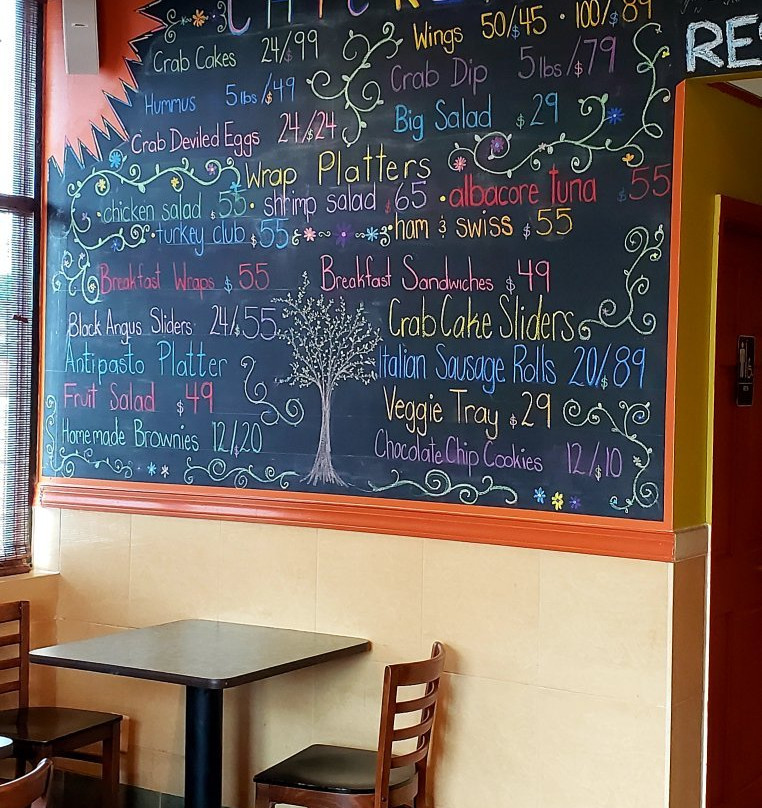 Wings 50/$45 · 100/$89
Crab Cakes 24/$99
Crab Dip 5lbs/$79
Hummus 5lbs/$49
Big Salad $29
Crab Deviled Eggs 24/$24
Wrap Platters
· chicken salad $55 · shrimp salad $65 · albacore tuna $55
· turkey club $55 · ham & swiss $55
Breakfast Wraps $55 Breakfast Sandwiches $49
Black Angus Sliders 24/$55 Crab Cake Sliders
Antipasto Platter Italian Sausage Rolls 20/$89
Fruit Salad $49 Veggie Tray $29
Homemade Brownies 12/$20 Chocolate Chip Cookies 12/$10